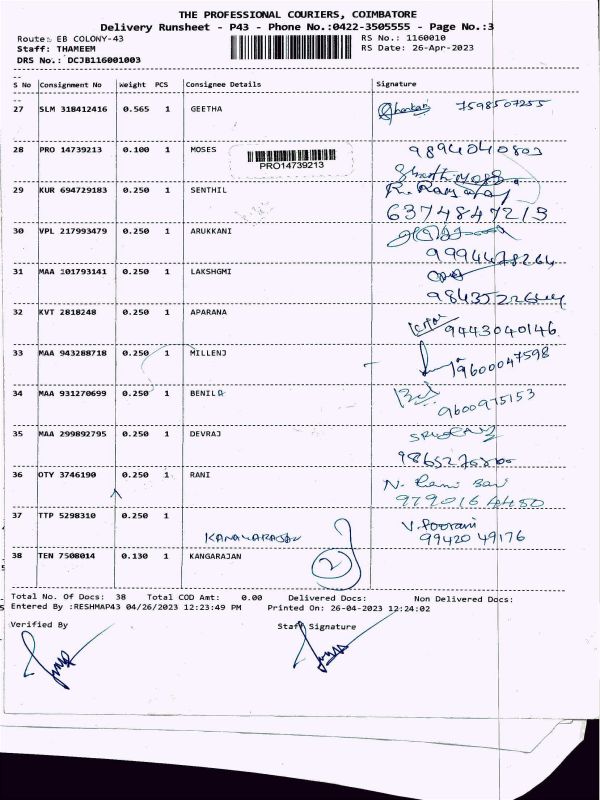 THE PROFESSIONAL COURIERS, COIMBATORE
Delivery Runsheet - P43 - Phone No.:0422-3505555 - Page No.:3
Route: EB COLONY-43 RS No.: 1160010
Staff: THAMEEM RS Date: 26-Apr-2023
DRS No.: DCJB116001003
S No Consignment No Weight PCS Consignee Details Signature
27 SLM 318412416 0.565 1 GEETHA 7598507255
28 PRO 14739213 0.100 1 MOSES 9894040803
PRO14739213
29 KUR 694729183 0.250 1 SENTHIL
6374847215
30 VPL 217993479 0.250 1 ARUKKANI
9994478264
31 MAA 101793141 0.250 1 LAKSHGMI
32 KVT 2818248 0.250 1 APARANA
9443040146
33 MAA 943288718 0.250 1 MILLENJ
9600047598
34 MAA 931270699 0.250 1 BENILA
9600975153
35 MAA 299892795 0.250 1 DEVRAJ
36 OTY 3746190 0.250 1 RANI N. Rani Bai
9790164450
37 TTP 5298310 0.250 1 V. Poorani
KANAKARAJAN 99420 49176
38 TEN 7508014 0.130 1 KANGARAJAN 2
Total No. Of Docs: 38 Total COD Amt: 0.00 Delivered Docs: Non Delivered Docs:
Entered By :RESHMAP43 04/26/2023 12:23:49 PM Printed On: 26-04-2023 12:24:02
Verified By Staff Signature